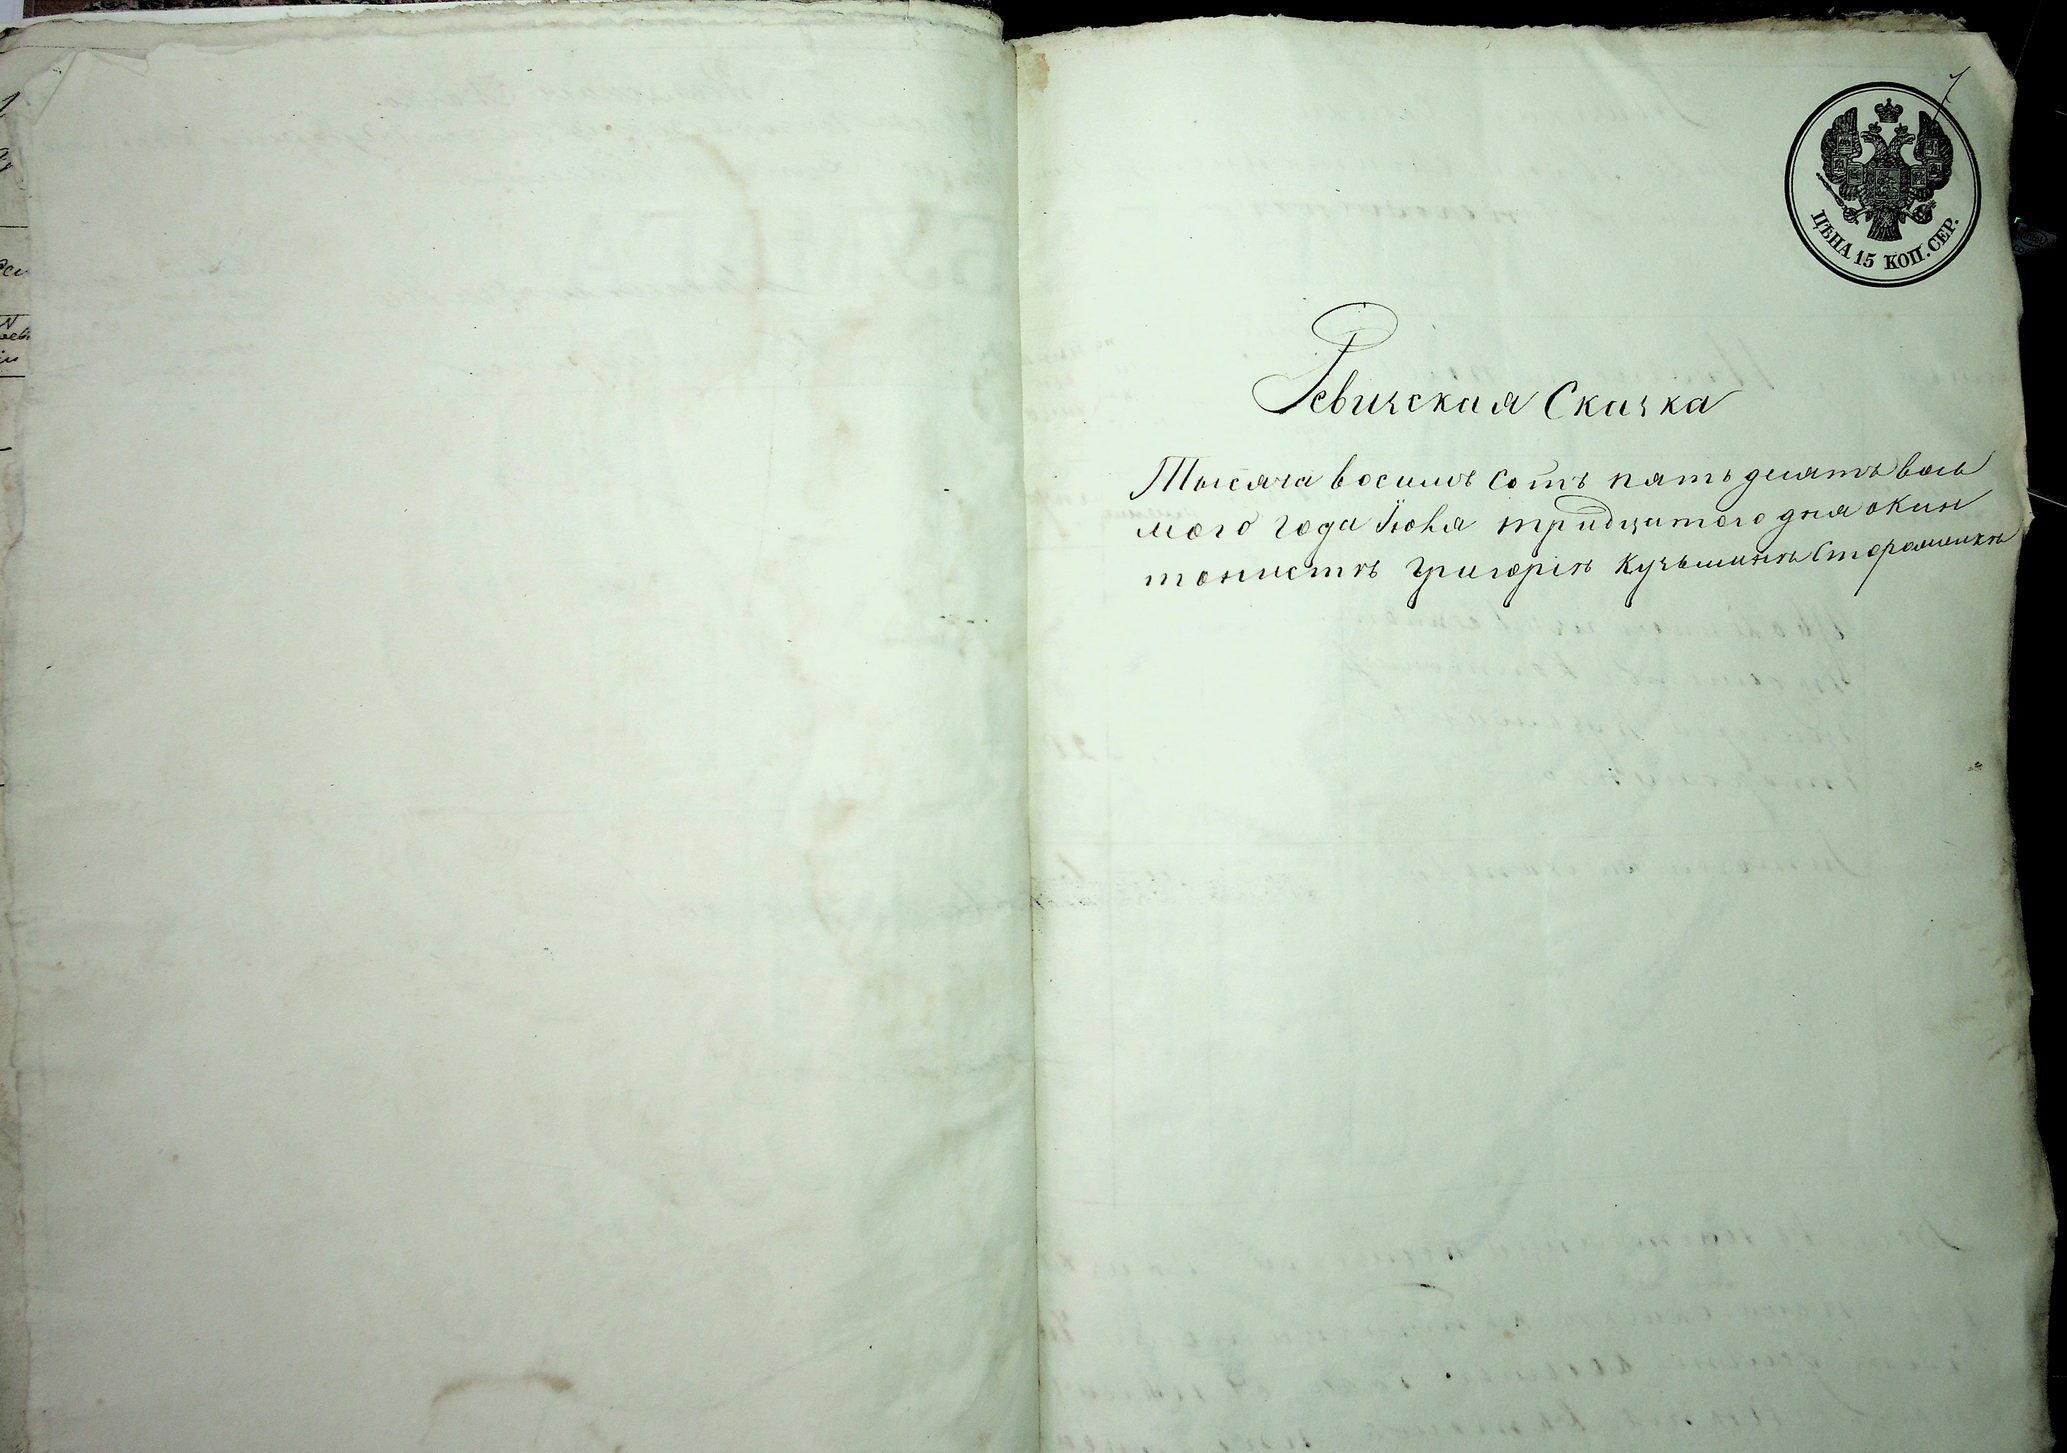 7
ЦѢНА 15 КОП. СЕР.
Ревизская Сказка
Тысяча восимъ сотъ пятьдесятъ вось
мого года Iюня тридцатого дня о кан
тонистѣ Григорiѣ Кузьминѣ